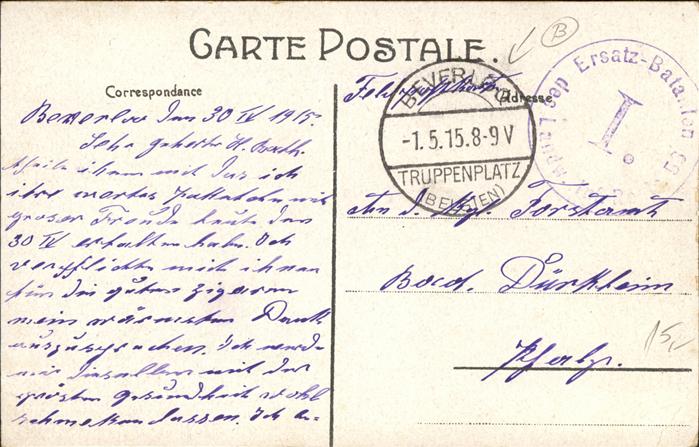 CARTE POSTALE.
Correspondance
Adresse
Feldpostkarte
BEVERLOO
-1.5.15.8-9V
TRUPPENPLATZ
(BELGIEN)
Ersatz-Bataillon
I.
B
Beverloo den 30 IV 1915.
Sehr geehrter H. Rath.
theile ihnen mit das ich
ihre wertes Paketchen mit
groser Freude heute den
30 IV erhalten habe. Ich
verpflichte mich ihnen
für die guten Zigarren
mein wärmsten Dank
auszusprechen. Ich werde
mir dieselben mit der
grösten Gesundheit wohl
schmeken lassen. Ich be-
An d. Kgl. Forstamt
Bad. Dürkheim
Pfalz.
15,-